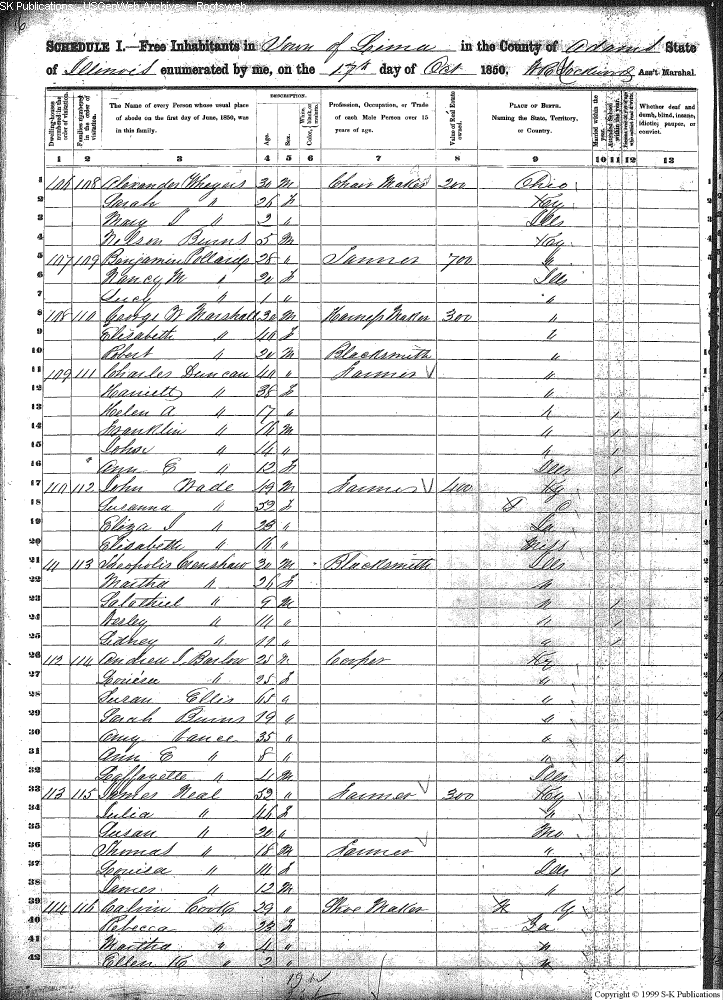 SK Publications - USGenWeb Archives - Rootsweb
SCHEDULE I.—Free Inhabitants in Town of Lima in the County of Adams State
of Illinois enumerated by me, on the 17th day of Oct 1850. Ass't Marshal.
Dwelling-houses numbered in the order of visitation. Families numbered in the order of visitation. The Name of every Person whose usual place of abode on the first day of June, 1850, was in this family. DESCRIPTION. Age. Sex. Color, White, black, or mulatto. Profession, Occupation, or Trade of each Male Person over 15 years of age. Value of Real Estate owned. PLACE OF BIRTH. Naming the State, Territory, or Country. Married within the year. Attended School within the year. Whether deaf and dumb, blind, insane, idiotic, pauper, or convict.
1 2 3 4 5 6 7 8 9 10 11 12 13
1 106 108 Alexander 30 M Chair Maker 200 Ohio
2 Sarah " 26 F Ky
3 Mary J " 2 " Ills
4 Nelson Burns 5 M Ky
5 107 109 Benjamin Pollard 28 " 700 "
6 Nancy M " 20 F Ills
7 Lucy " 1 " "
8 108 110 George W Marshall 30 M Harness Maker 300 "
9 Elisabeth " 40 F "
10 Robert " 20 M Blacksmith "
11 109 111 Charles Duncan 40 " Farmer "
12 Harriett " 38 F "
13 Helen A " 17 " " 1
14 Franklin " M " 1
15 " 14 " " 1
16 Ann E " 12 F Ills 1
17 110 112 John Wade 49 M Farmer 400 Ky
18 Susanna " 52 F
19 Eliza J " 23 "
20 Elisabeth " 16 " Miss
21 111 113 Crenshaw 30 M Blacksmith Ills
22 Martha " 26 F "
23 " 9 M " 1
24 Wesley " " " 1
25 Sidney " " " 1
26 112 114 Andrew J Barlow 25 Cooper Ky
27 Louisa " 25 F "
28 Susan Ellis 65 " "
29 Sarah Burns 19 " "
30 Amy Vance 35 " "
31 Ann E " 8 " " 1
32 Laffayette " 4 M Ills
33 113 115 James Neal 52 " Farmer 300 Ky
34 Julia " 46 F "
35 Susan " 20 " Mo
36 Thomas " 18 M Farmer "
37 Louisa " 14 F Ills 1
38 James " 12 M " 1
39 114 116 Calvin Cook 29 " Shoe Maker N Y
40 Rebecca " 23 F
41 Martha " 4 " "
42 Ellen K " 2 " "
Copyright © 1999 S-K Publications